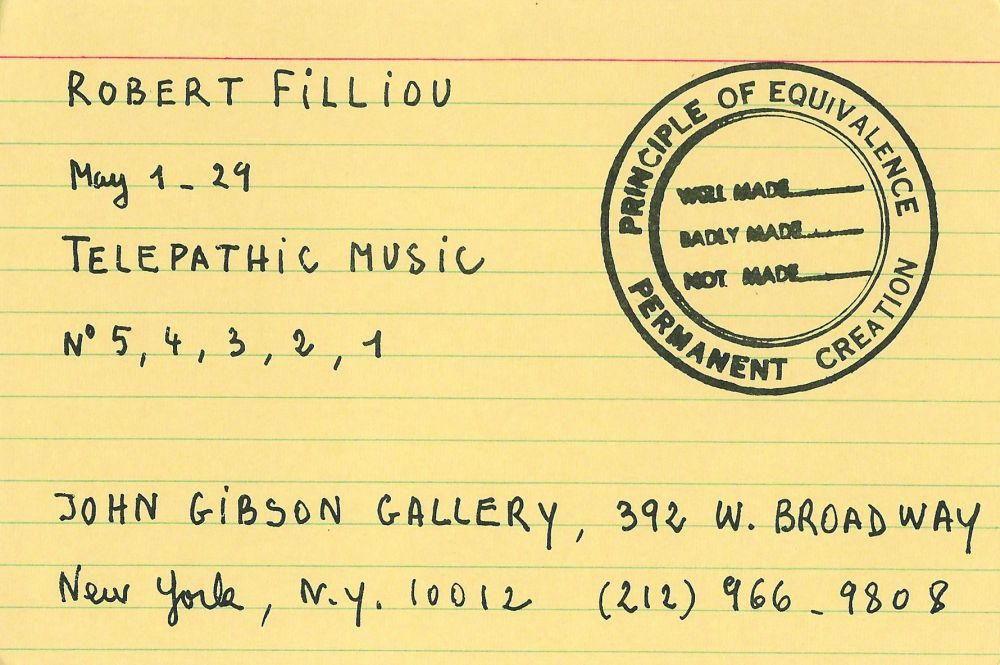 ROBERT FiLLiOU
May 1 _ 29
TELEPATHiC MUSiC
N° 5, 4, 3, 2, 1
PRINCIPLE OF EQUIVALENCE
WELL MADE
BADLY MADE
NOT MADE
PERMANENT CREATION
JOHN GiBSON GALLERY, 392 W. BROADWAY
New York, N.Y. 10012 (212) 966_9808